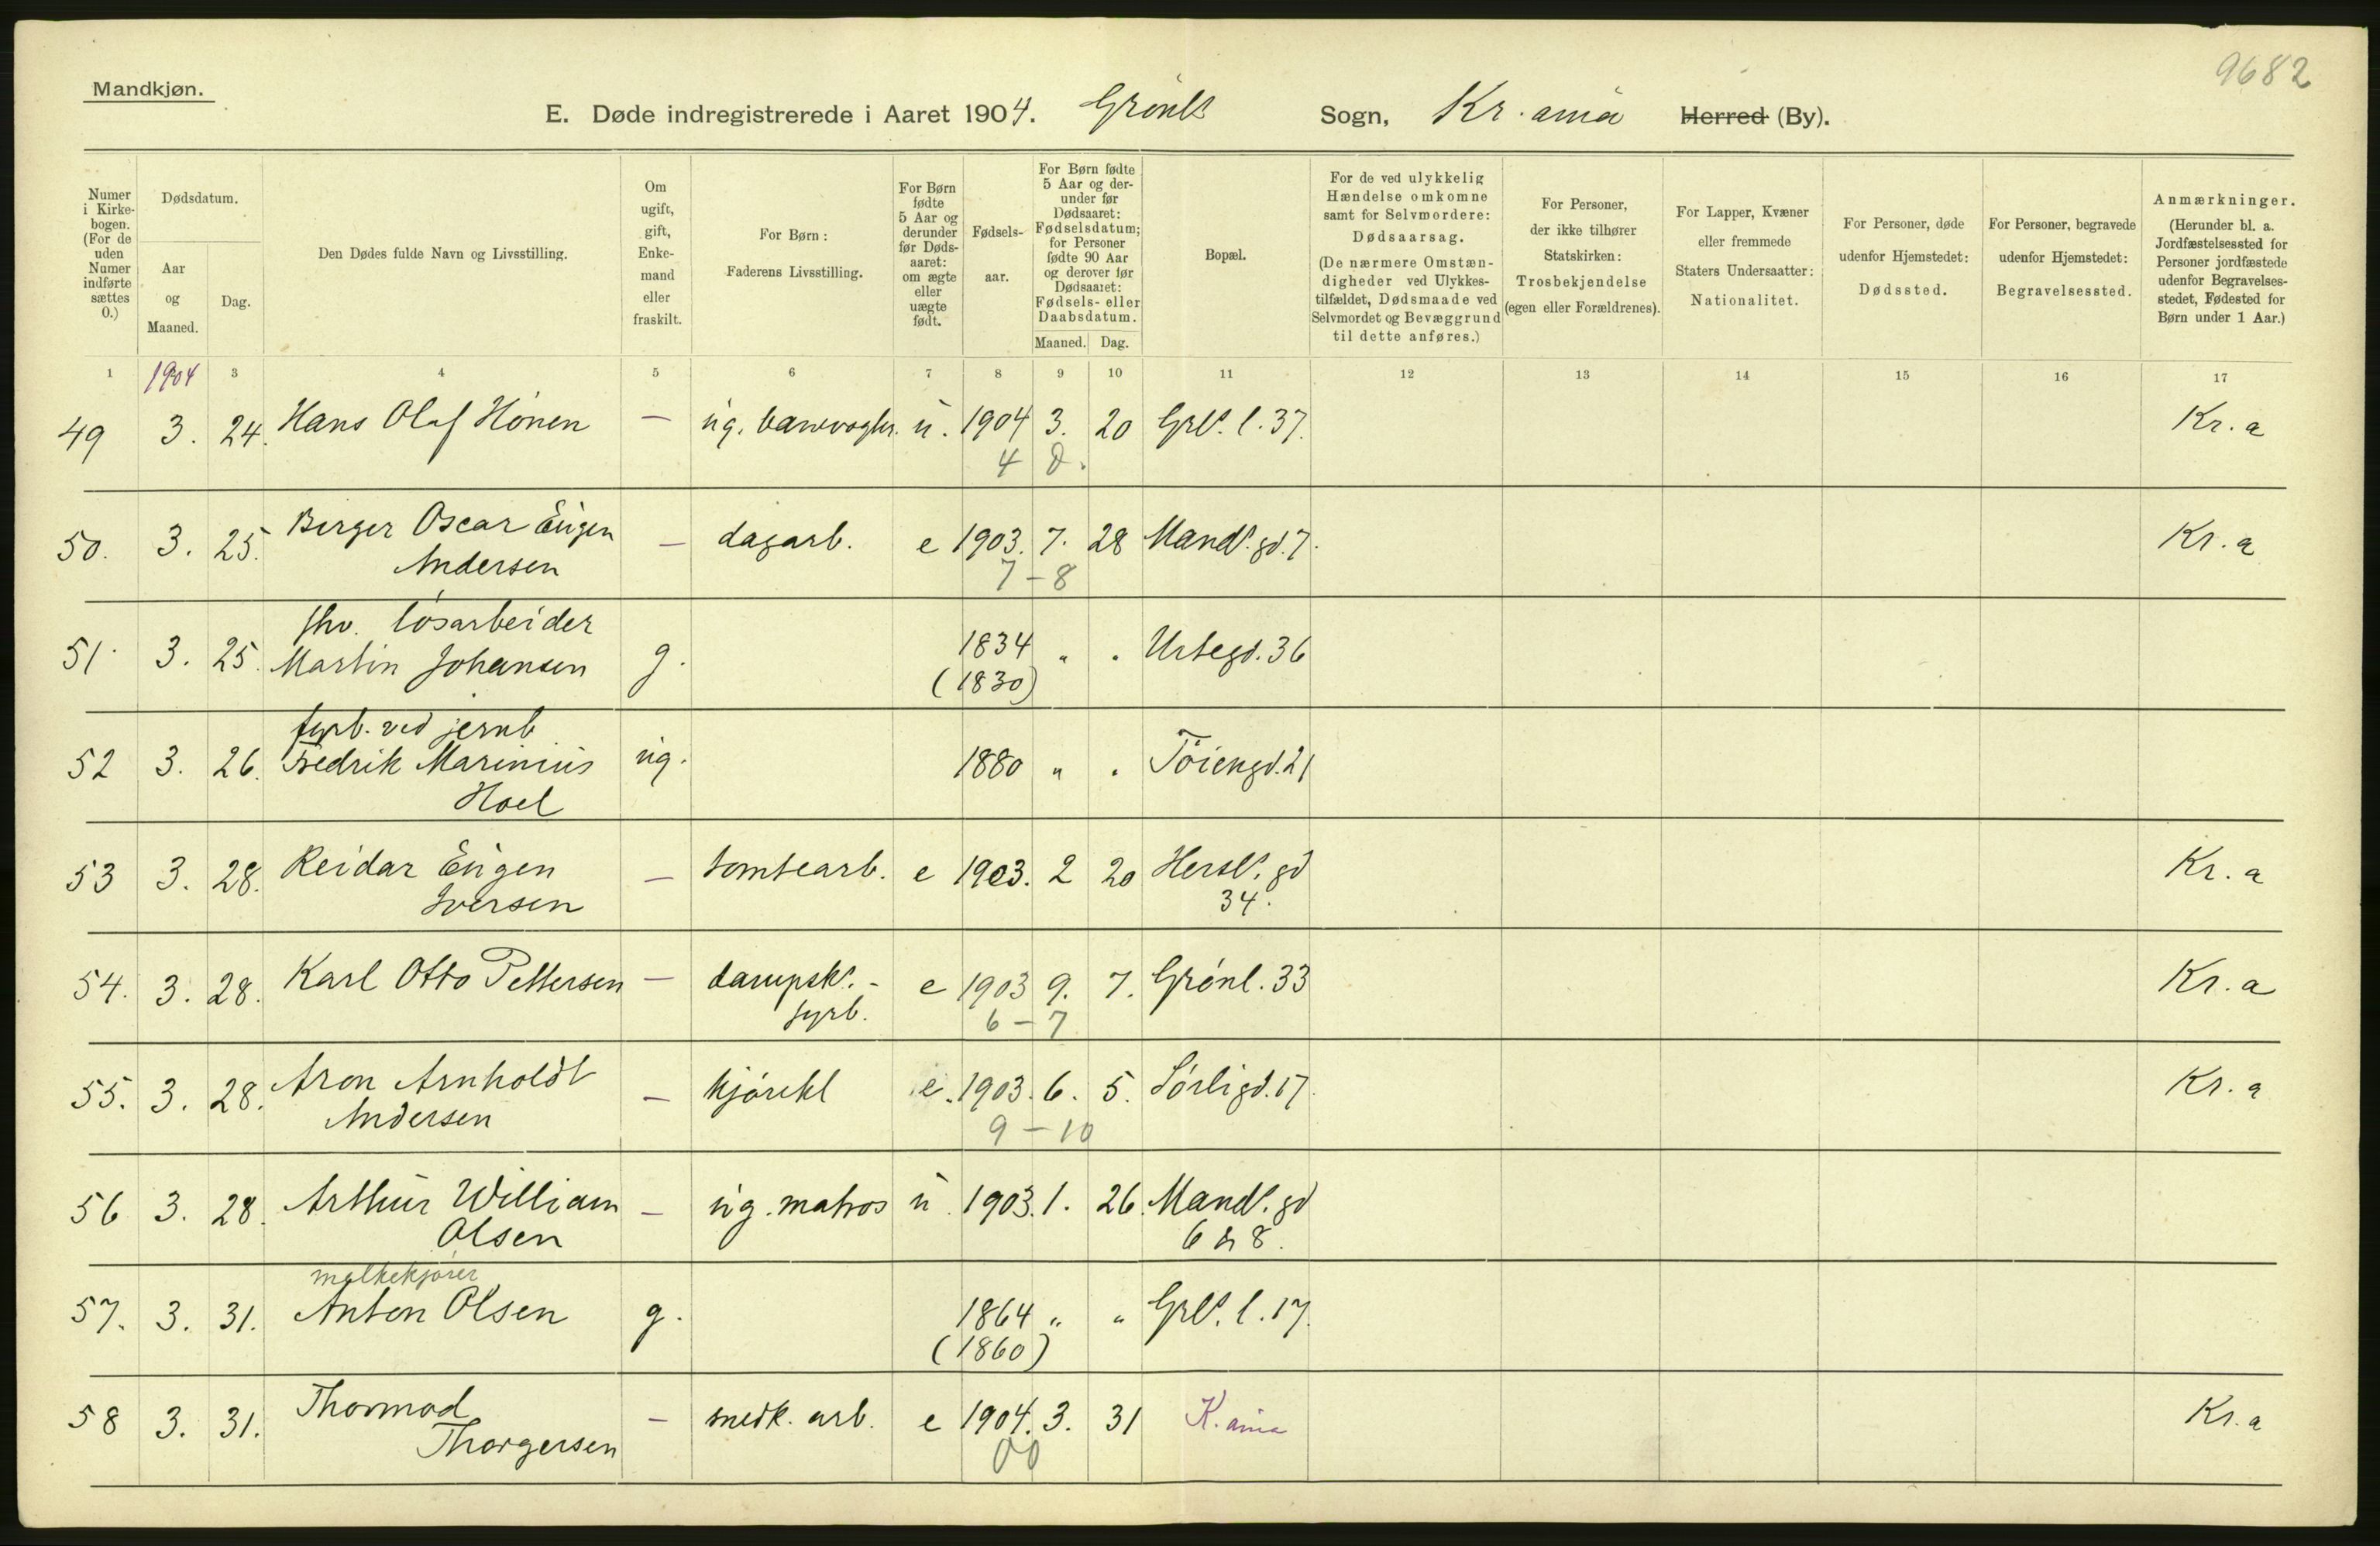 9682
Mandkjøn.
E. Døde indregistrerede i Aaret 1904. Grønl. Sogn, Kr.ania Herred (By).
Numer i Kirke-bogen. (For de uden Numer indførte sættes 0.)
Dødsdatum.
Aar og Maaned.
Dag.
Den Dødes fulde Navn og Livsstilling.
Om ugift, gift, Enke-mand eller fraskilt.
For Børn: Faderens Livsstilling.
For Børn fødte 5 Aar og derunder før Døds-aaret: om ægte eller uægte født.
Fødsels-aar.
For Børn fødte 5 Aar og der-under før Dødsaaret: Fødselsdatum; for Personer fødte 90 Aar og derover før Dødsaaret: Fødsels- eller Daabsdatum.
Maaned. Dag.
Bopæl.
For de ved ulykkelig Hændelse omkomne samt for Selvmordere: Dødsaarsag. (De nærmere Omstæn-digheder ved Ulykkes-tilfældet, Dødsmaade ved Selvmordet og Bevæggrund til dette anføres.)
For Personer, der ikke tilhører Statskirken: Trosbekjendelse (egen eller Forældrenes).
For Lapper, Kvæner eller fremmede Staters Undersaatter: Nationalitet.
For Personer, døde udenfor Hjemstedet: Dødssted.
For Personer, begravede udenfor Hjemstedet: Begravelsessted.
Anmærkninger. (Herunder bl. a. Jordfæstelsessted for Personer jordfæstede udenfor Begravelses-stedet, Fødested for Børn under 1 Aar.)
1 1904 3 4 5 6 7 8 9 10 11 12 13 14 15 16 17
49 3. 24. Hans Olaf Hönen — ug. u. 1904 3. 20 Grl. l. 37. Kr. a
4 d.
50. 3. 25. Birger Oscar Eugen — dagarb. e 1903. 7. 28 Mand. gd. 7. Kr. a
Andersen
7 – 8
fhv. løsarbeider
51. 3. 25. Martin Johansen g. 1834 " . Urtegd. 36
(1830)
fyrb. ved jernb
52 3. 26. Fredrik Marinius ug. 1880 " . Töiengd. 21
Hoel
53 3. 28. Reidar Eugen — tomtearb. e 1903. 2 20 Hersl. gd Kr. a
Iversen 34.
54. 3. 28. Karl Otto Pettersen — dampsk.- e 1903 9. 7. Grönl. 33 Kr. a
fyrb. 6 – 7
55. 3. 28. Aron Arnholdt — kjörekl e. 1903. 6. 5. Sörligd. 17. Kr. a
Andersen 9 – 10
56 3. 28. Arthur William — ug. matros u. 1903. 1. 26. Mand. gd
Olsen 6 & 8.
melkekjører
57. 3. 31. Anton Olsen g. 1864 " " Grl. l. 17.
(1860)
58 3. 31. Thormod — snedk. arb. e 1904. 3. 31 K.ania Kr. a
Thorgersen 00